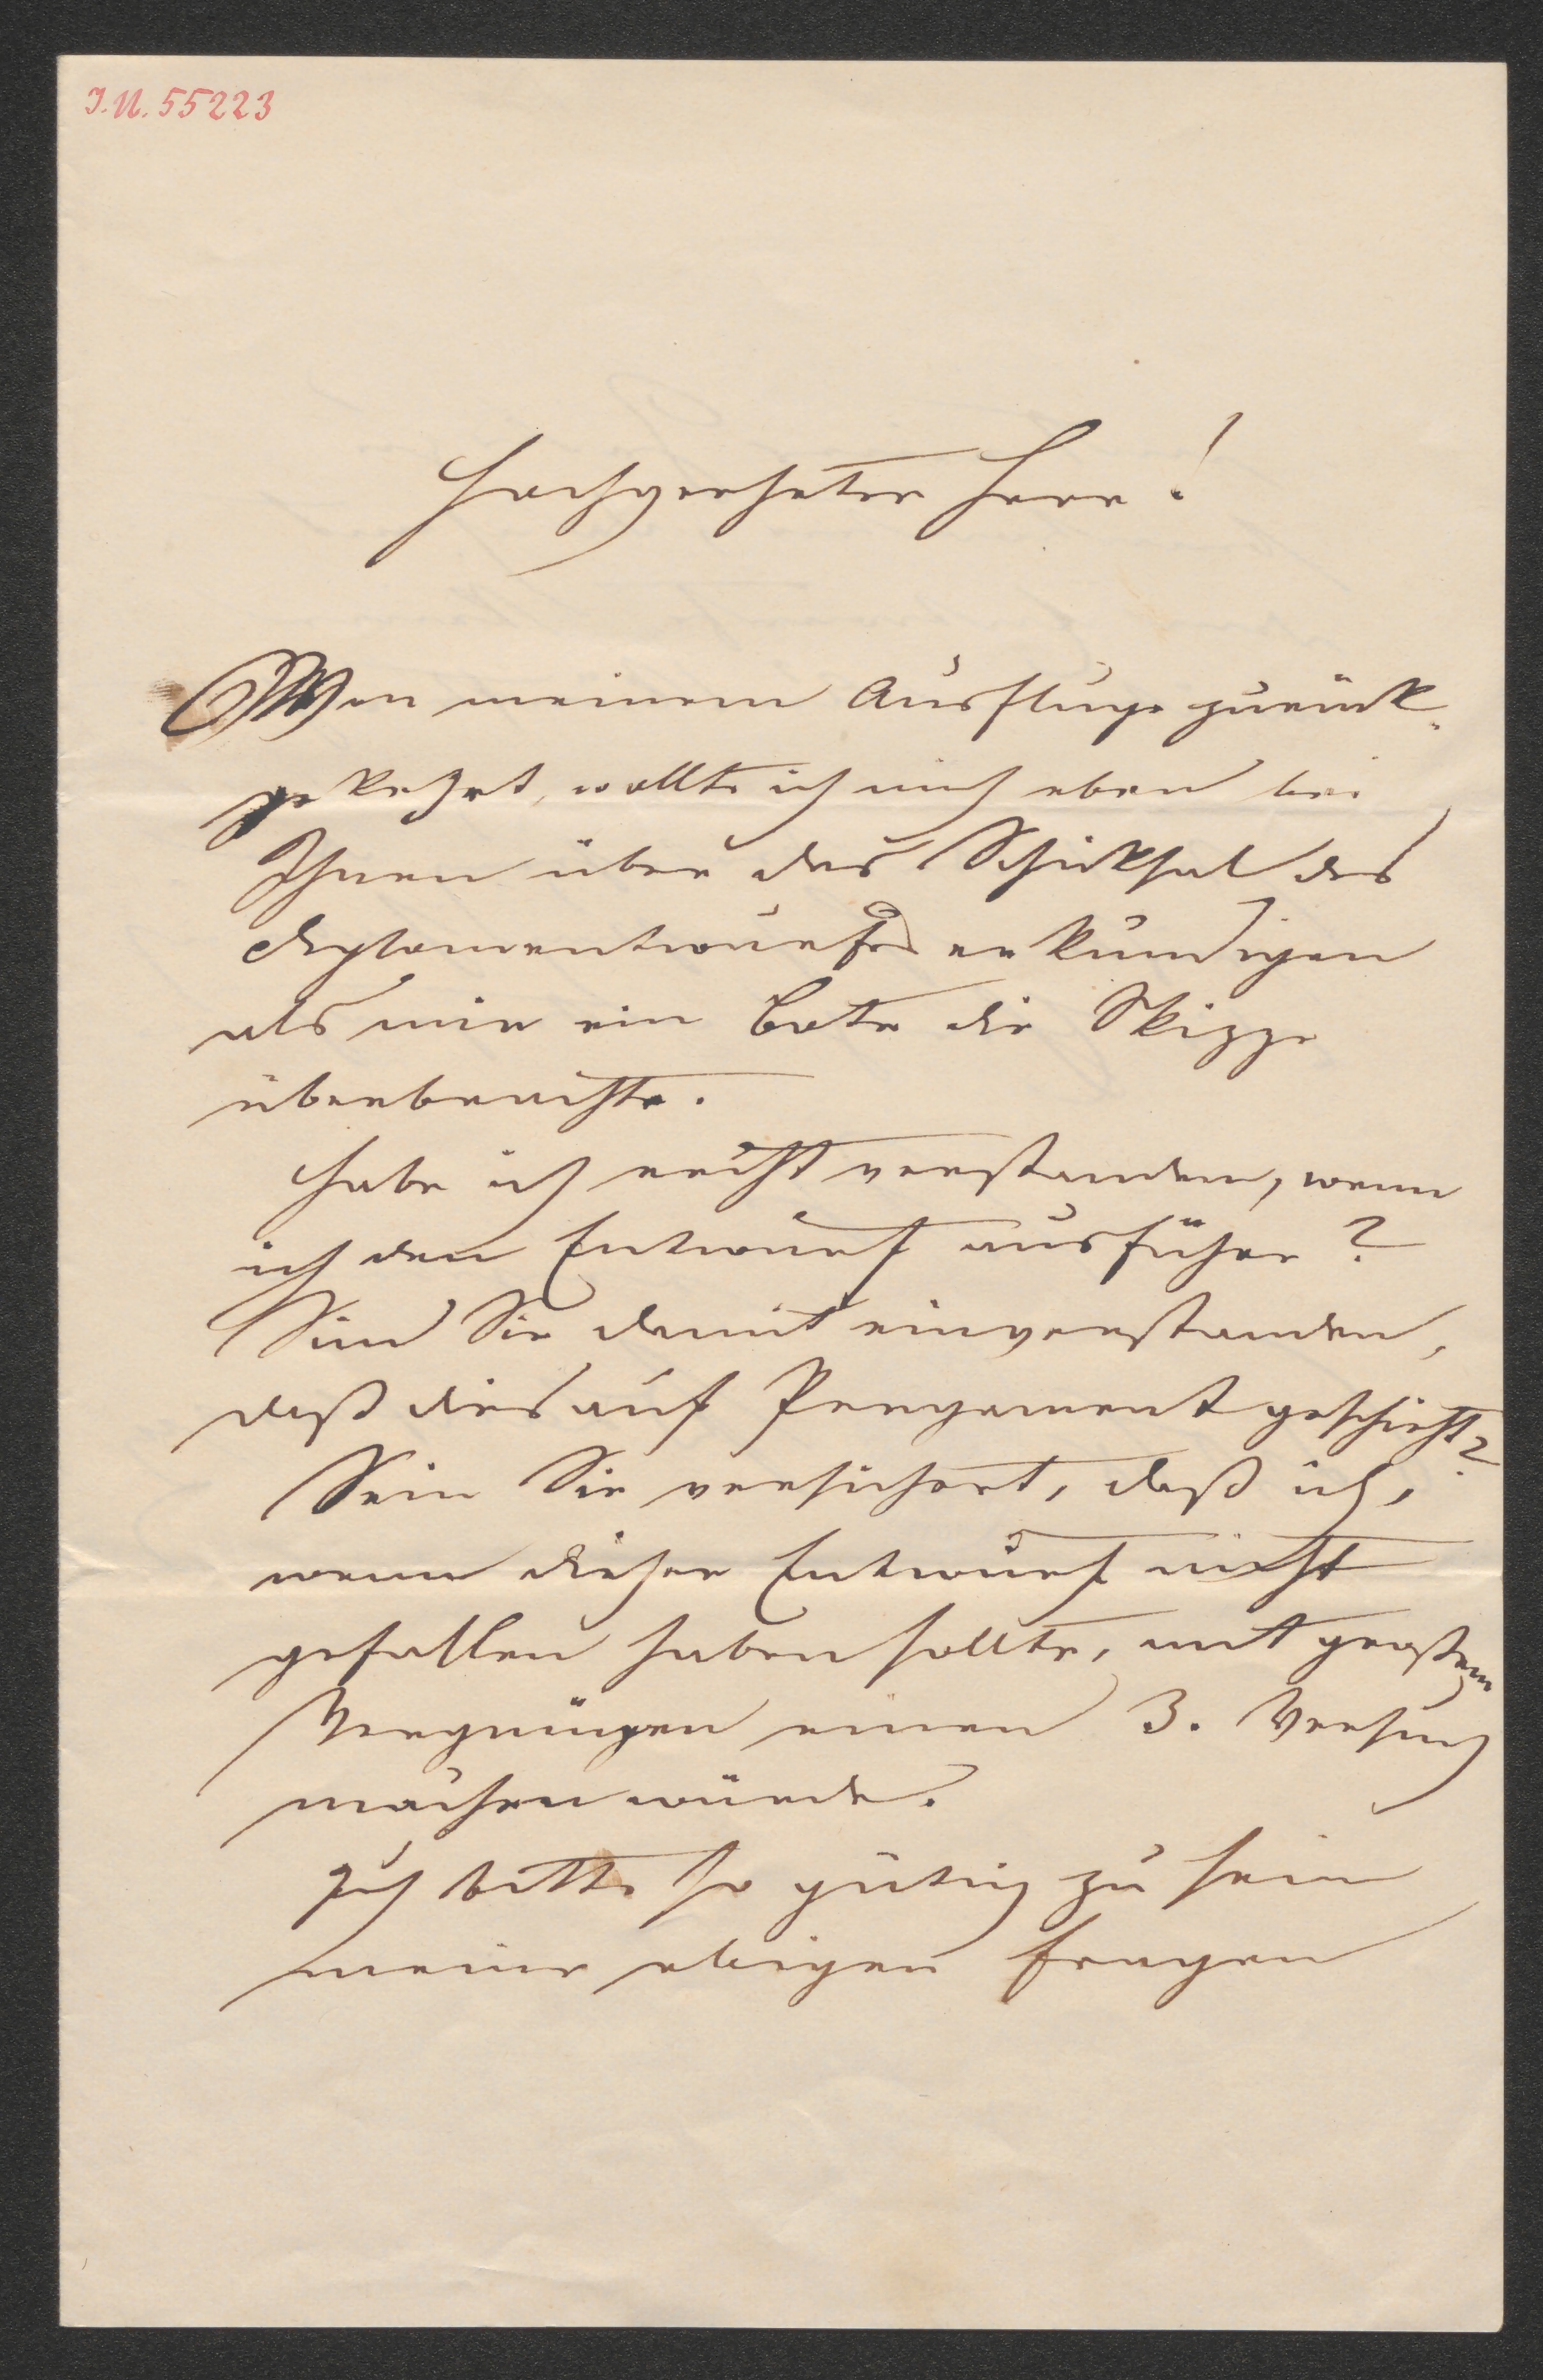 J.N. 55223
Hochgeehrter Herr!
Von meinem Ausfluge zurück-
gekehrt, wollte ich mich eben bei
Ihnen über das Schicksal des
Diplomentwurfes erkundigen
als mir ein Bote die Skizze
überbrachte.
Habe ich recht verstanden, wenn
ich den Entwurf ausführe?
Sind Sie damit einverstanden,
daß dies auf Pergament geschieht?
Sein Sie versichert, daß ich,
wenn dieser Entwurf nicht
gefallen haben sollte, mit großem
Vergnügen einen 3. Versuch
machen würde.
Ich bitte so gütig zu sein
meine obigen Fragen